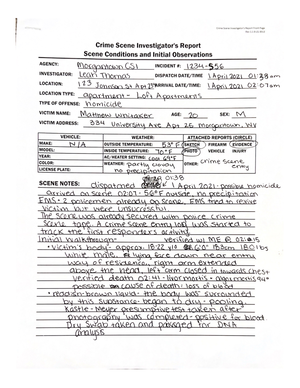 Crime Scene Investigator's Report
Scene Conditions and Initial Observations
AGENCY: Morgantown CSI INCIDENT #: 1234-556
INVESTIGATOR: Leah Thomas DISPATCH DATE/TIME 1 April 2021 01:38am
LOCATION: 123 Johnson St Apt 23 ARRIVAL DATE/TIME: 1 April 2021 02:07am
LOCATION TYPE: apartment - Loft Apartments
TYPE OF OFFENSE: Homicide
VICTIM NAME: Matthew Whitaker AGE: 20 SEX: M
VICTIM ADDRESS: 334 University Ave Apt 26 Morgantown, WV
VEHICLE: WEATHER: ATTACHED REPORTS (CIRCLE)
MAKE: N/A OUTSIDE TEMP: 53°F SKETCH FIREARM EVIDENCE
MODEL: INSIDE TEMP: 70°F PHOTO VEHICLE INJURY
YEAR: AC/HEATER SETTING: cool 69°F OTHER: crime scene
COLOR: WEATHER: partly cloudy entry
LICENSE PLATE: no precipitation
SCENE NOTES: dispatched 0138 1 April 2021 - positive homicide
Arrived on scene 02:07 - 56°F outside, no precipitation
EMS + 2 policemen already on scene. EMS tried to revive
victim but were unsuccessful.
The scene was already secured with police crime
scene tape. A crime scene entry log was started to
track the first responders activity.
Initial walkthrough verified w/ ME @ 02:15
• Victim's body: approx. 18-22 y/o 6'0" 180lb
white male. lying face down near entry
way of residence, right arm extended
above the head, left arm closed in towards chest
verified death 02:41 - livormortis - algormortis 94°
possible cause of death: loss of blood
• reddish-brown liquid: the body was surrounded
by this substance - began to dry - pooling.
Kastle-Meyer presumptive test taken after
photography was completed - positive for blood
Dry swab taken and passed for DNA
analysis